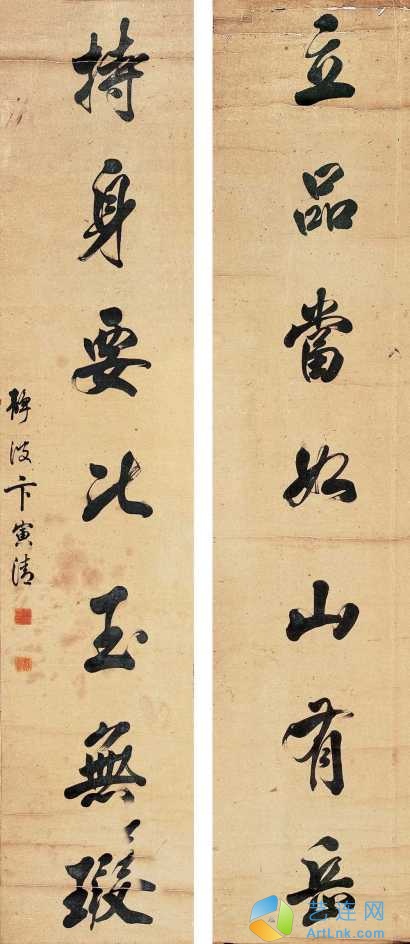 立品當如山有岳
持身要比玉無瑕
卞寅清
艺连网
ArtLink.com